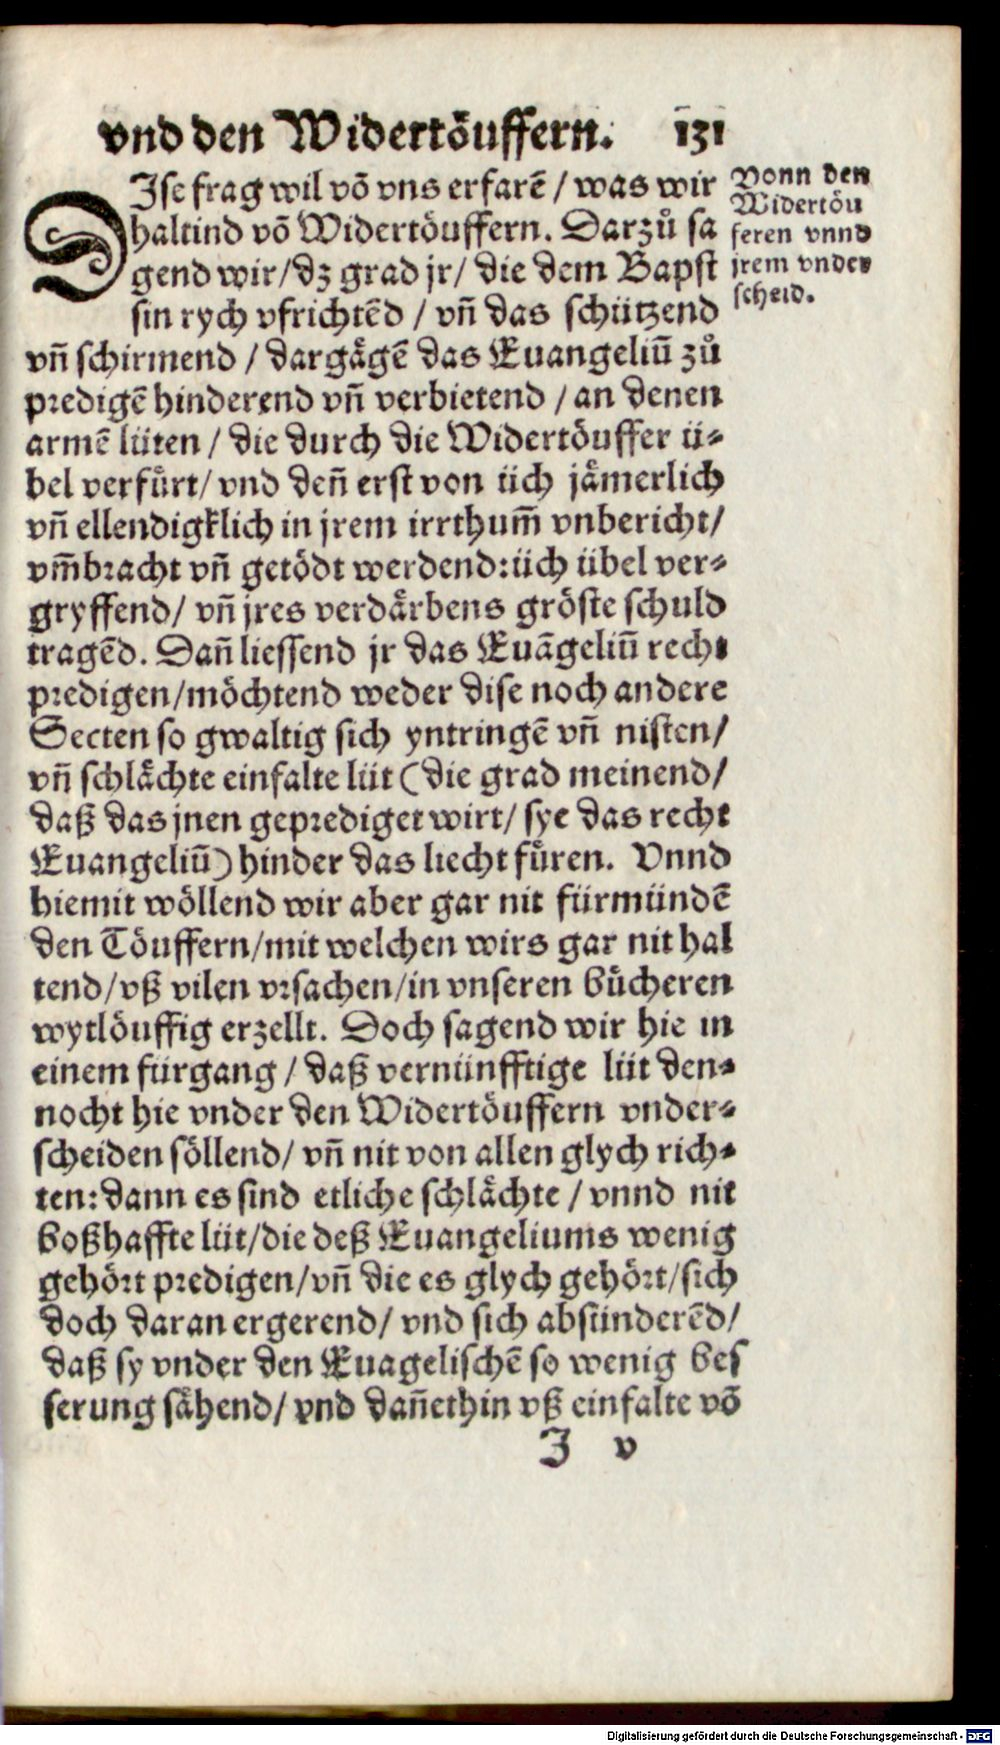 vnd den Widertöuffern. 131
DJse frag wil võ vns erfarẽ / was wir
haltind võ Widertöuffern. Darzů sa
gend wir/dz grad jr/ die dem Bapst
sin rych vfrichtẽd / vñ das schützend
vñ schirmend / dargägẽ das Euangeliũ zů
predigẽ hinderend vñ verbietend / an denen
armẽ lüten / die durch die Widertöuffer ü⸗
bel verfürt/ vnd deñ erst von üch jämerlich
vñ ellendigklich in jrem irrthum̃ vnbericht/
vm̃bracht vñ getödt werdend: üch übel ver⸗
gryffend/ vñ jres verdärbens gröste schuld
tragẽd. Dañ liessend jr das Euãgeliũ recht
predigen/möchtend weder dise noch andere
Secten so gwaltig sich yntringẽ vñ nisten/
vñ schlächte einfalte lüt (die grad meinend/
daß das jnen geprediget wirt/ sye das recht
Euangeliũ) hinder das liecht füren. Vnnd
hiemit wöllend wir aber gar nit fürmündẽ
den Töuffern/mit welchen wirs gar nit hal
tend/vß vilen vrsachen/in vnseren bücheren
wytlöuffig erzellt. Doch sagend wir hie in
einem fürgang / daß vernünfftige lüt den⸗
nocht hie vnder den Widertöuffern vnder⸗
scheiden söllend/ vñ nit von allen glych rich⸗
ten: dann es sind etliche schlächte / vnnd nit
boßhaffte lüt/die deß Euangeliums wenig
gehört predigen/vñ die es glych gehört/sich
doch daran ergerend/ vnd sich absünderẽd/
daß sy vnder den Euagelischẽ so wenig bes
serung sähend/ vnd dañethin vß einfalte võ
J v
Vonn den
Widertöu
feren vnnd
jrem vnder
scheid.
Digitalisierung gefördert durch die Deutsche Forschungsgemeinschaft - DFG